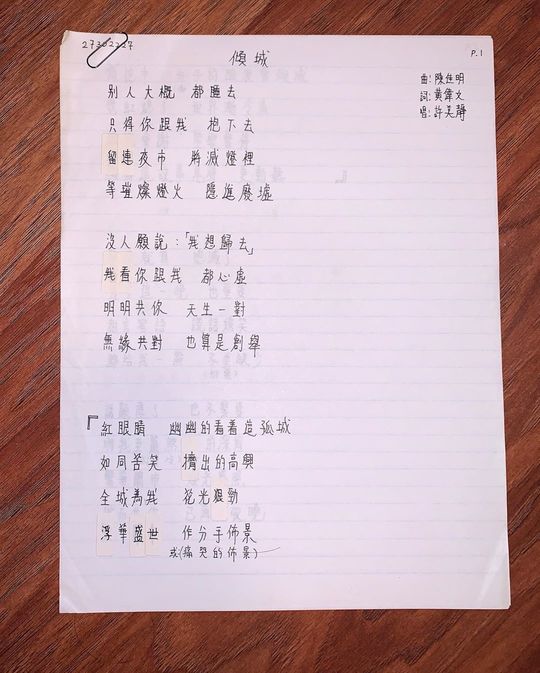 27302227
P.1
傾城
曲:陳進明
詞:黃偉文
唱:許美靜
別人大概 都睡去
只得你跟我 抱下去
留連夜市 將滅燈裡
等璀燦燈火 隱進廢墟
沒人願說:「我想歸去」
我看你跟我 都心虛
明明共你 天生一對
無緣共對 也算是創舉
『紅眼睛 幽幽的看着這孤城
如同苦笑 擠出的高興
全城為我 花光狠勁
浮華盛世 作分手佈景
或(痛哭的佈景)